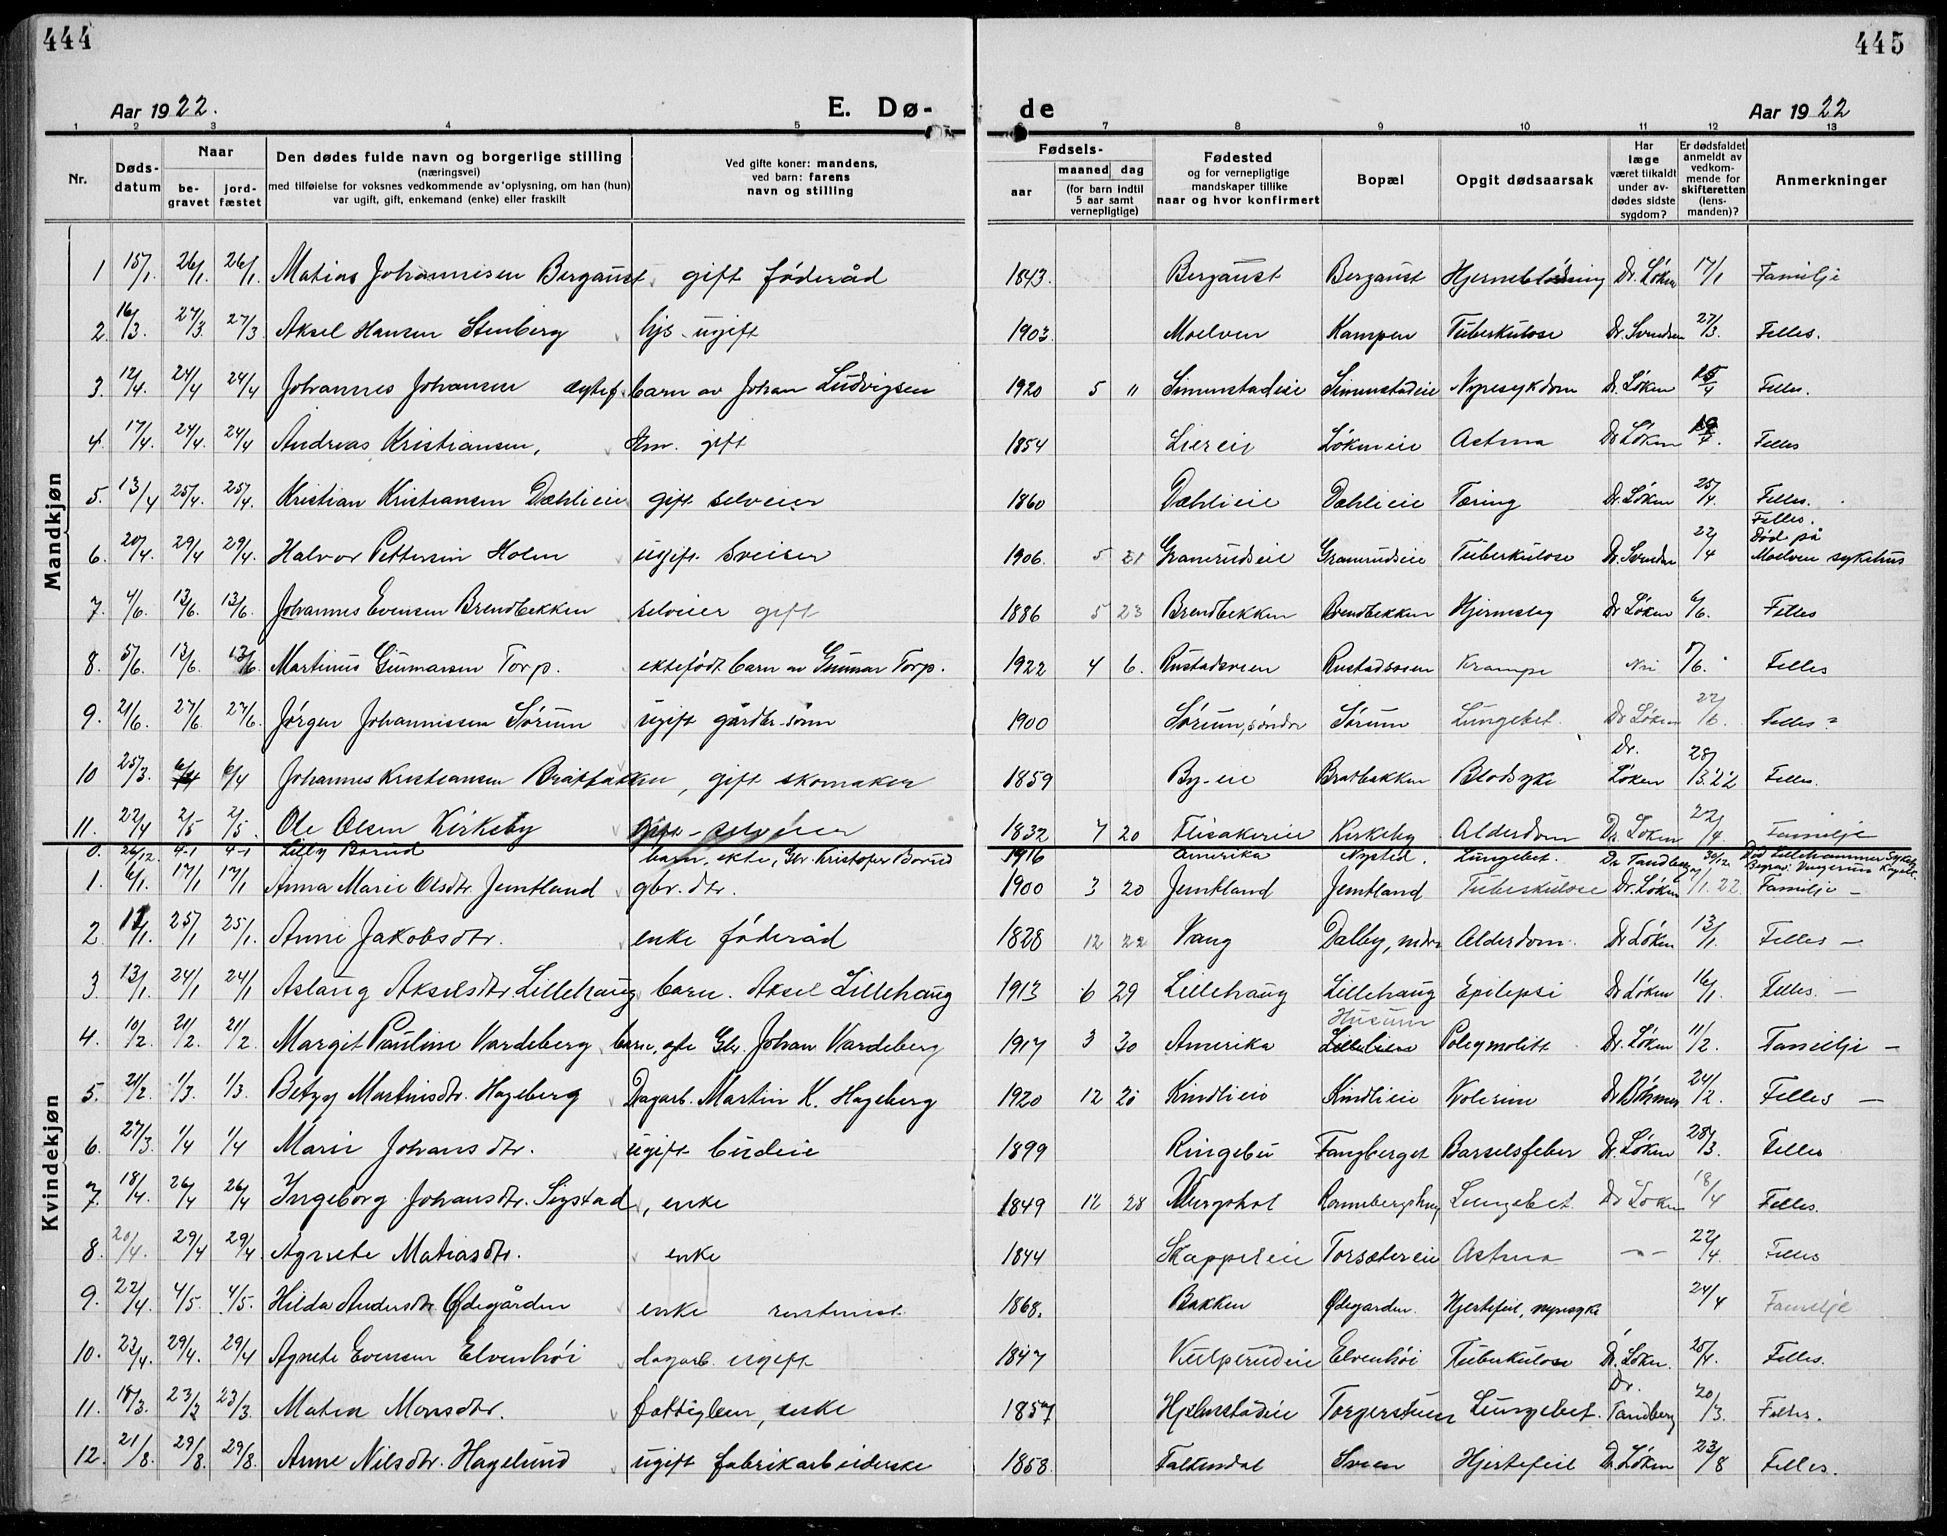 444
445
Aar 1922.
E. Dø-
de
Aar 1922
1 2 3 4 5 6 7 8 9 10 11 12 13
Nr.
Døds-datum
Naar
be-gravet
jord-fæstet
Den dødes fulde navn og borgerlige stilling
(næringsvei)
med tilføielse for voksnes vedkommende av oplysning, om han (hun)
var ugift, gift, enkemand (enke) eller fraskilt
Ved gifte koner: mandens,
ved barn: farens
navn og stilling
Fødsels-
aar
maaned dag
(for barn indtil
5 aar samt
vernepligtige)
Fødested
og for vernepligtige
mandskaper tillike
naar og hvor konfirmert
Bopæl
Opgit dødsaarsak
Har
læge
været tilkaldt
under av-
dødes sidste
sygdom?
Er dødsfaldet
anmeldt av
vedkom-
mende for
skifteretten
(lens-
manden)?
Anmerkninger
Mandkjøn
1 15/1. 26/1. 26/1. Matias Johannesen Bergaust gift føderåd 1843. Bergaust Bergaust Hjerneblødning Dr. Løken 17/1 Familje
2. 16/3. 27/3 27/3 Aksel Hansen Stenberg hjs. ugift 1903. Moelven Kampen Tuberkulose Dr. Svendsen 27/3. Felles.
3. 12/4. 24/4 24/4 Johannes Johansen ægtef. barn av Johan Ludvigsen 1920 5 11 Simenstadeie Simenstadeie Nyresykdom Dr. Løken 15/4 Felles.
4. 17/4. 24/4. 24/4 Andreas Kristiansen, Em. gift 1854 Liereie Løkeneie Astma Dr Løken Felles
5. 13/4 25/4. 25/4. Kristian Kristiansen Dæhlieie gift selveier 1860 Dæhlieie Dæhlieie Tæring Dr. Løken 25/4. Felles.
6. 20/4. 29/4 29/4. Halvor Pettersen Holm ugift sveiser 1906. 5 21 Granerudseie Granerudseie Tuberkulose Dr. Svendsen 22/4 Felles. Død på Moelven sykehus
7. 4/6. 13/6. 13/6. Johannes Evensen Brendbekken selveier gift 1886 5 23 Brendbekken Brendbekken Hjerneslag Dr Løken 6/6. Felles
8. 5/6. 13/6. 13/6. Martinus Gunnarsen Torp. ektefødt barn av Gunnar Torp. 1922 4 6. Rustadsveen Rustadsveen Krampe Nei 8/6. Felles
9. 21/6. 27/6. 27/6. Jørgen Johannessen Sørum ugift gårdbr. sønn 1900 Sørum, søndre Sørum Lungebet. Dr Løken 22/6. Felles
10 25/3. 6/4 6/4 Johannes Kristiansen Bratbakken, gift skomaker 1859 By-eie Bratbakken Blodsyke Dr. Løken 28/3.22 Felles.
11. 22/4 2/5 2/5. Ole Olsen Kirkeby gift - selveier 1832 7 20 Flisakereie Kirkeby Alderdom Dr. Løken 22/4. Familje
Kvindekjøn
0. 26/12. 4-1 4-1 Lilly Borud barn, ekte, Gbr. Kristofer Borud 1916 Amerika Nysted. Lungebet. Dr Tandberg 30/12 Død Lillehammer Sykeh. Begrav.
1. 6/1. 17/1 17/1 Anna Marie Olsdtr. Jemtland gbr. dtr. 1900 3 20 Jemtland Jemtland Tuberkulose Dr. Løken /1.22. Familje -
2 11/1. 25/1 25/1. Anne Jakobsdtr. enke føderåd 1828 12 22 Vang Dalby, nedre Alderdom. Dr Løken 13/1. Felles -
3. 13/1. 24/1 24/1 Aslaug Akselsdtr. Lillehaug barn. Aksel Lillehaug 1913 6 29 Lillehaug Lillehaug Epilepsi Dr Løken 16/1. Felles. -
4. 10/2. 21/2. 21/2. Margit Pauline Vardeberg barn, Gbr. Johan Vardeberg 1917 3 30 Amerika Husum Dr. Løken 11/2. Familje -
5. 21/2. 1/3. 1/3. Betzy Martinsdtr. Hageberg Dagarb. Martin K. Hageberg 1920 12 20 Kindlieie Kindlieie Kolerine Dr Bøhmer 24/2. Felles -
6. 27/3. 1/4 1/4 Marie Johansdtr. ugift budeie 1899 Ringebu Fangberget Barselsfeber Dr. Løken 28/3. Felles
7. 18/4. 26/4 26/4 Ingeborg Johansdtr. Sigstad, enke 1849 12 28 Lungebet. Dr Løken 18/4 Felles.
8. 20/4. 29/4 29/4. Agnete Matiasdtr. enke 1844 Skappeleie Torsætereie Astma -"- 22/4. Felles
9. 22/4. 4/5. 4/5. Hilda Andersdtr. Ødegården enke 1868. Bakken Ødegarden. Hjertefeil, nyresyke 24/4 Familje
10. 22/4. 29/4. 29/4 Agnete Evensen Elvenhøi dagarb. ugift 1847 Kulperudeie Elvenhøi Tuberkulose Dr. Løken. 25/4. Felles.
11. 18/3. 23/3 23/3. Matea Monsdtr. fattiglem, enke 1857 Hjelmstadeie Torgerstuen Lungebet. Dr. Tandberg 20/3. Felles.
12. 21/8. 29/8. 29/8. Anne Nilsdtr. Hagelund ugift fabrikarbeiderske 1858. Falkendal Sveen Hjertefeil Dr. Løken 23/8 Felles.